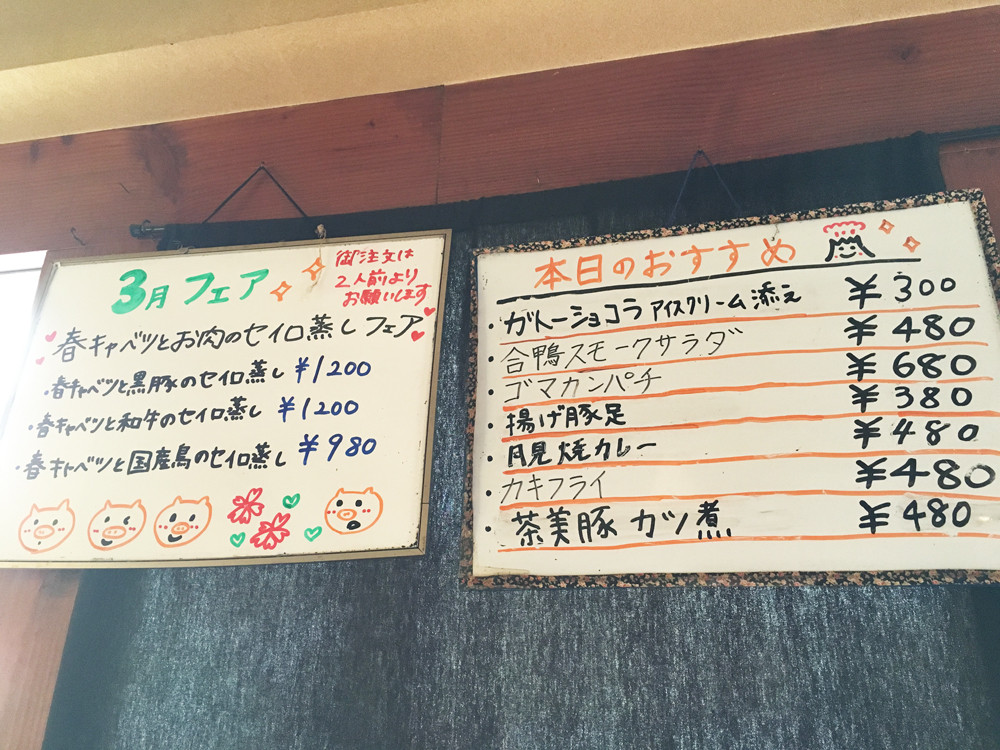 3月フェア
御注文は
2人前より
お願いします
春キャベツとお肉のセイロ蒸しフェア
・春キャベツと黒豚のセイロ蒸し ¥1200
・春キャベツと和牛のセイロ蒸し ¥1200
・春キャベツと国産鳥のセイロ蒸し ¥980
本日のおすすめ
・ガトーショコラ アイスクリーム添え ¥300
・合鴨スモークサラダ ¥480
・ゴマカンパチ ¥680
・揚げ豚足 ¥380
・月見焼カレー ¥480
・カキフライ ¥480
・茶美豚カツ煮 ¥480